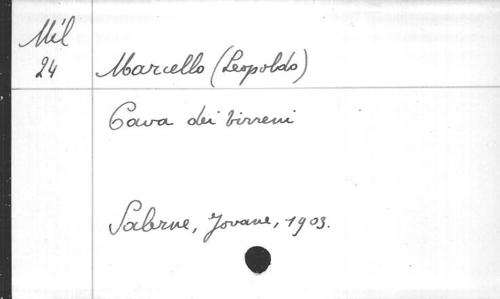 Mil
24
Marcello (Leopoldo)
Cava dei Tirreni
Salerne, Jovane, 1903.